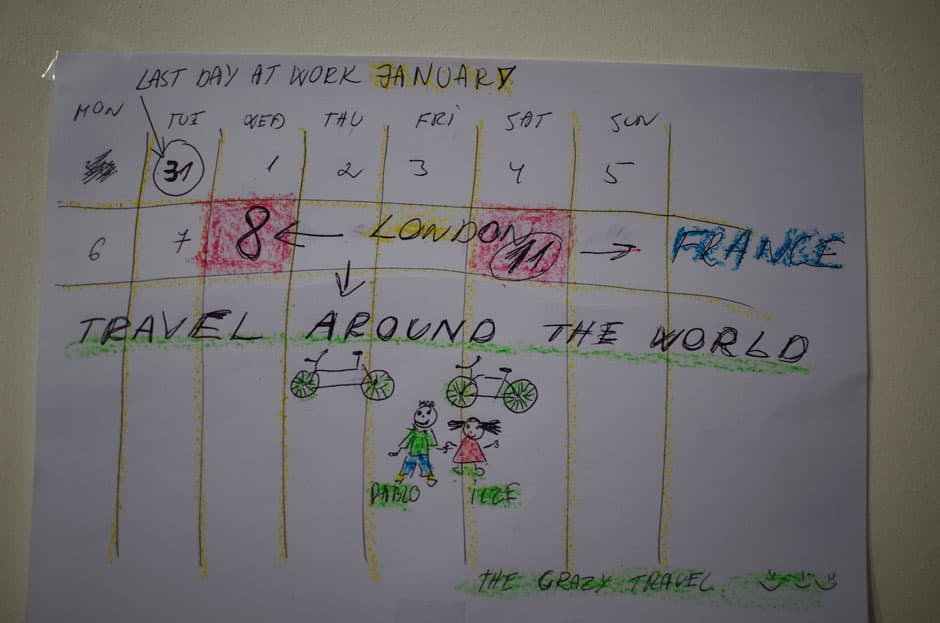 LAST DAY AT WORK JANUARY
MON TUI WED THU FRI SAT SUN
31 1 2 3 4 5
6 7 8 ← LONDON 11 → FRANCE
TRAVEL AROUND THE WORLD
PABLO ILZE
THE CRAZY TRAVEL